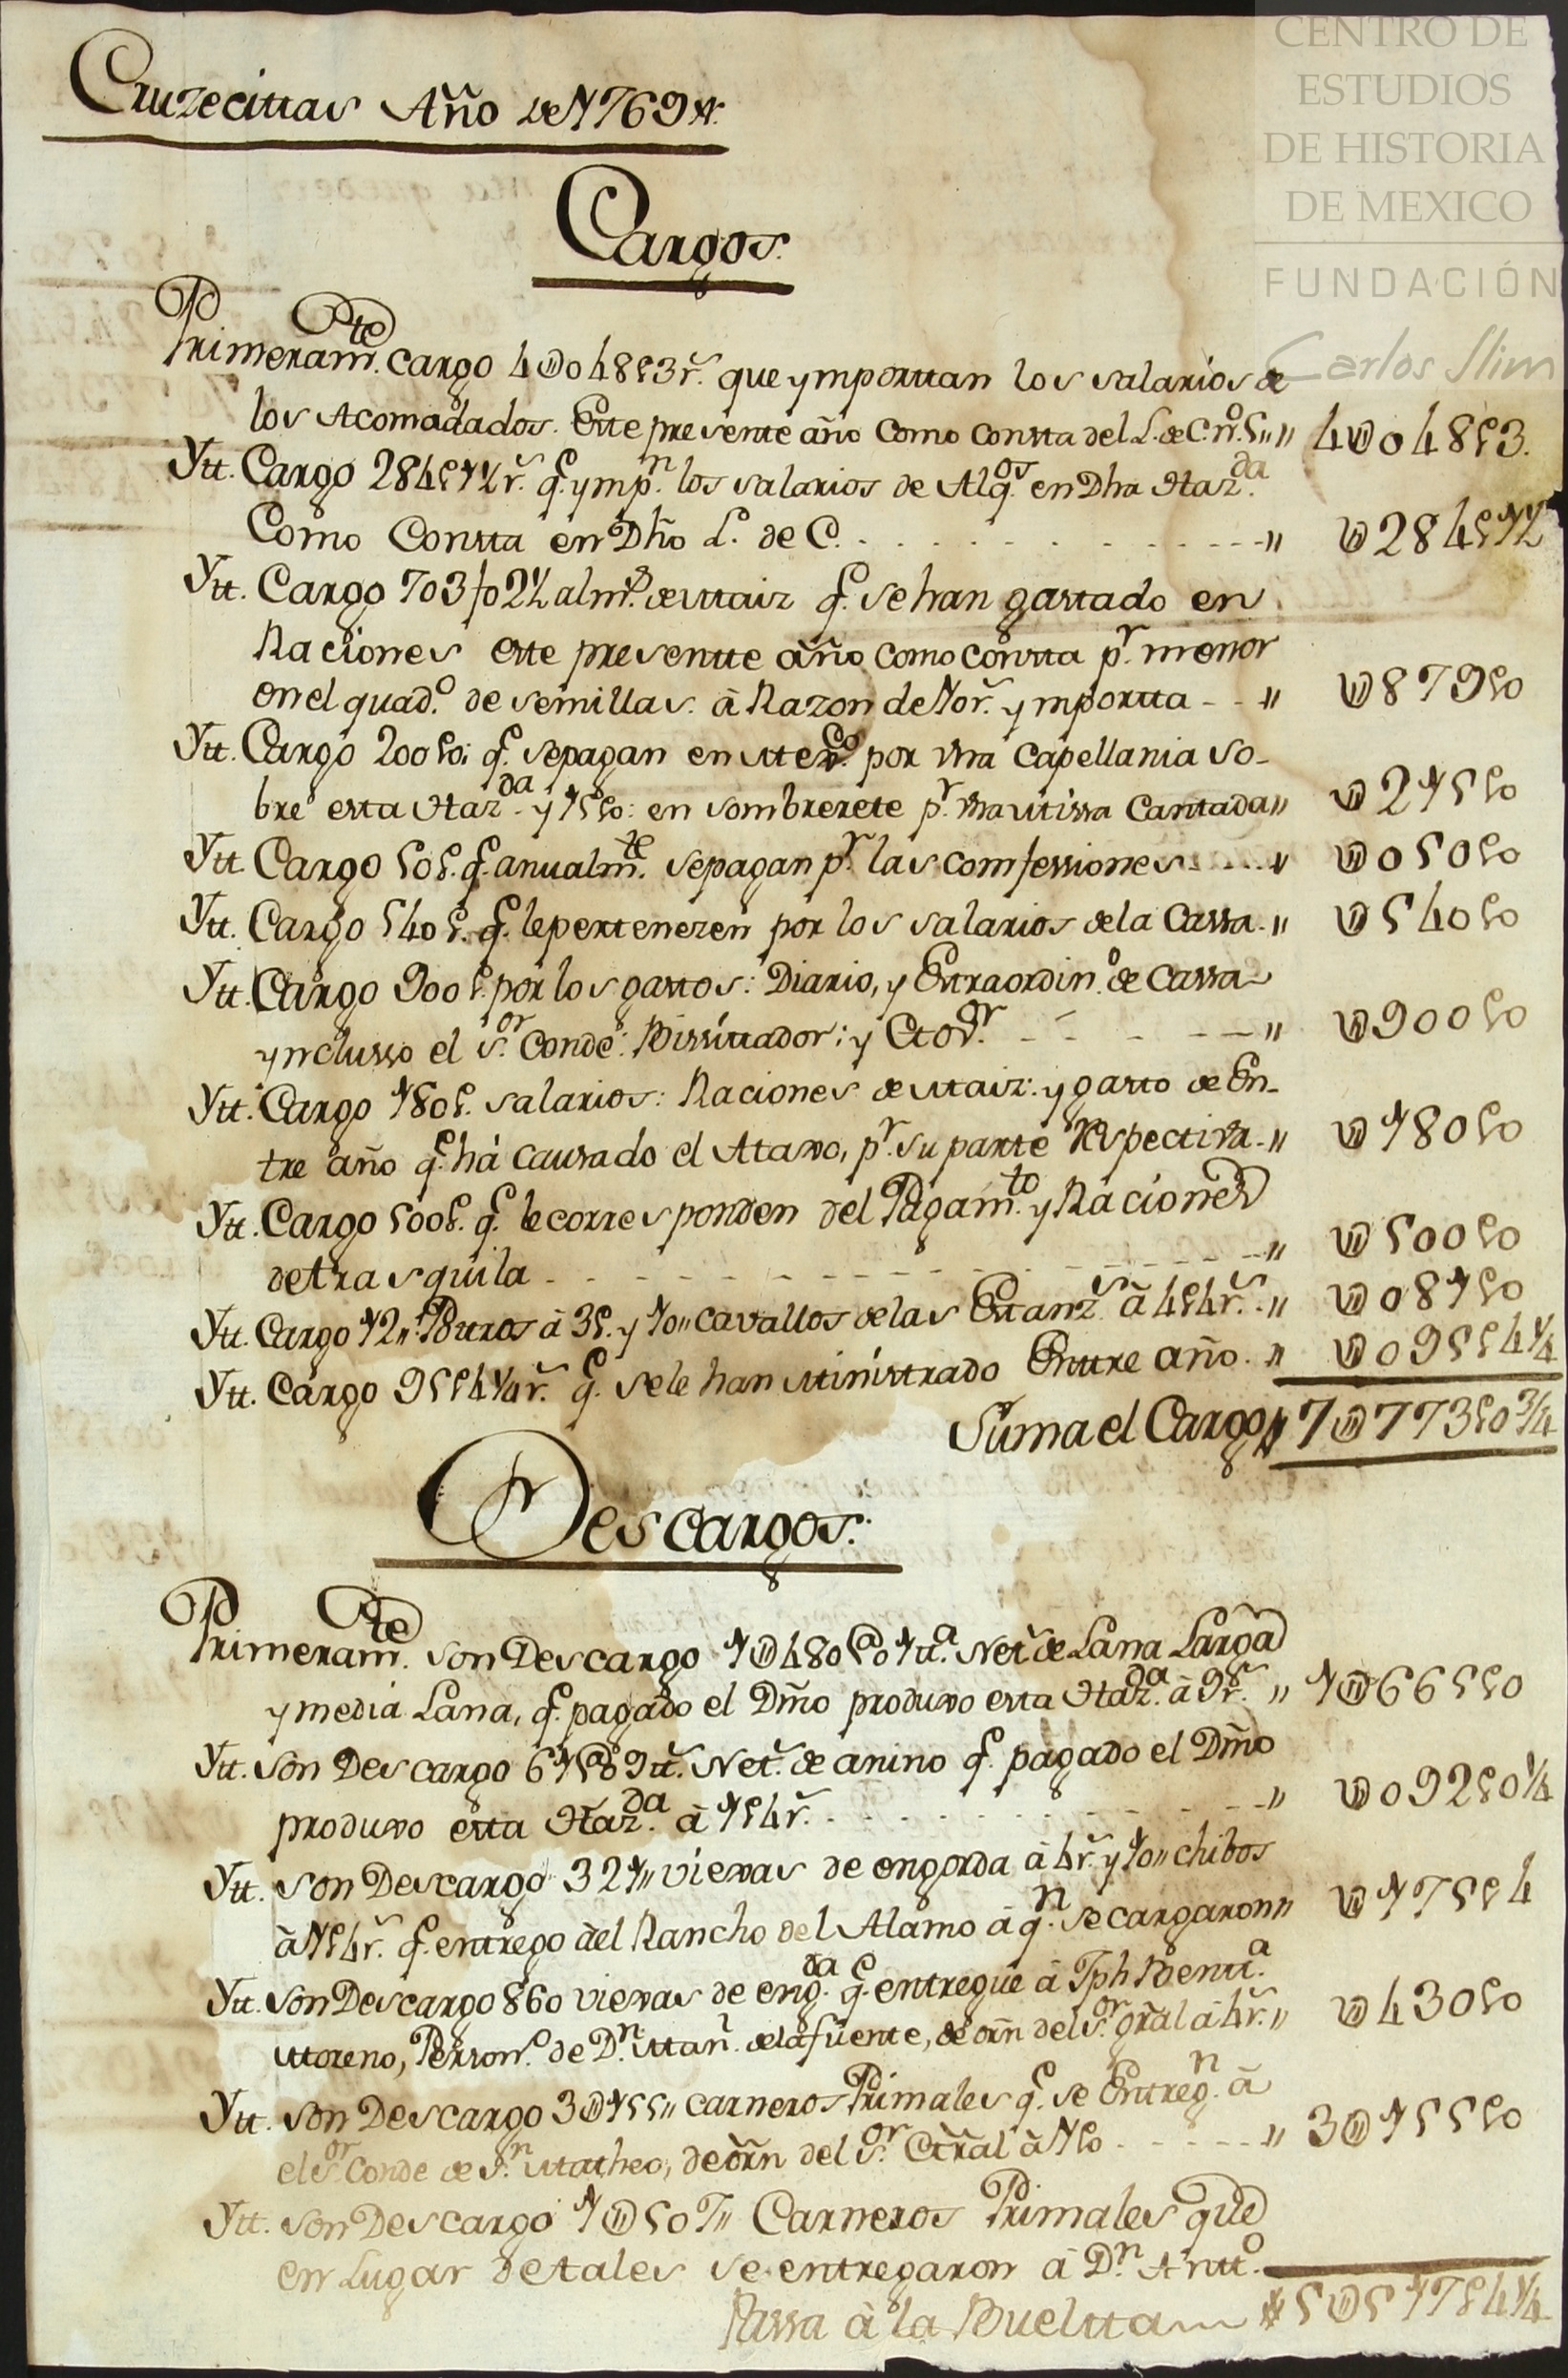 CENTRO DE
ESTUDIOS
DE HISTORIA
DE MEXICO
FUNDACIÓN
Carlos Slim
Cruzecittas Año de 1769 as.
Cargos.
Primeram.te Cargo 4U048p3r.s que ymporttan los salarios de
los Acomodados. Este presente año Como Constta del L. de C. n.o 5,, 4U048p3.
Ytt. Cargo 284p1½r.s q.e ymp.n los salarios de Alq.os en Dha Haz.da
Como Constta en Dho L.o de C. - - - ,, U284p1½
Ytt. Cargo 703f02½ alm.s de Maiz q.e se han gastado en
Raciones este presentte año como constta p.r menor
en el quad.o de semillas. à Razon de 10r.s ymportta - - ,, U879p0
Ytt. Cargo 200p0: q.e se pagan en Mex.co por vna Capellania so-
bre esta Haz.da y 15p0: en Sombrerete p.r vna Missa Cantada,, U215p0
Ytt. Cargo 50p. q.e anualm.te se pagan p.r las comfessiones - - - ,, U050p0
Ytt. Cargo 540p. q.e le pertenezen por los salarios de la Cassa. ,, U540p0
Ytt. Cargo 900p. por los gastos: Diario, y Extraordin.o de Cassa
yncluso el S.or Conde: Vissittador: y - - - ,, U900p0
Ytt. Cargo 180p. salarios: Raciones de Maiz: y gasto de En-
tre año q.e há causado el Ataxo, p.r su parte respectiva. ,, U180p0
Ytt. Cargo 500p. q.e le corresponden del Pagam.to y Raciones
de trasquila - - - ,, U500p0
Ytt. Cargo 12,, Burros à 3p. y 10,, cavallos de las Estanz.s à 4p4r.s ,, U081p0
Ytt. Cargo 95p4¼r.s q.e se le han Ministrado Enttre año. ,, U095p4¼
Suma el Cargo 7U773p0¾
Descargos.
Primeram.te son Descargo 1U480@01tt.a Net.s de Lana Larga
y media Lana, q.e pagado el Dmo produxo esta Haz.da à 9r.s ,, 1U665p0
Ytt. son Descargo 61@09tt.s Net.s de anino q.e pagado el Dmo
produxo esta Haz.da à 1p4r.s - - - ,, U092p0¼
Ytt. son Descargo 321,, viexas de engorda à 4r.s y 10,, chibos
à 1p4r.s q.e entrego àel Rancho del Alamo à q.n se cargaron,, U175p4
Ytt. son Descargo 860 viexas de eng.da q.e entregue à Jph Ventt.a
Moreno, Person.o de D.n Man.l de la fuente, de orn del S.or gral à 4r.s ,, U430p0
Ytt. son Descargo 3U155,, carneros Primales q.e se Entreg.n à
el S.or Conde de S.n Matheo, de orn del S.or Gral à 1p0 - - - ,, 3U155p0
Ytt. son Descargo 1U507,, Carneros Primales que
en Lugar de tales se entregaron à D.n Antt.o
Passa à la Buelta 5U517p4¼